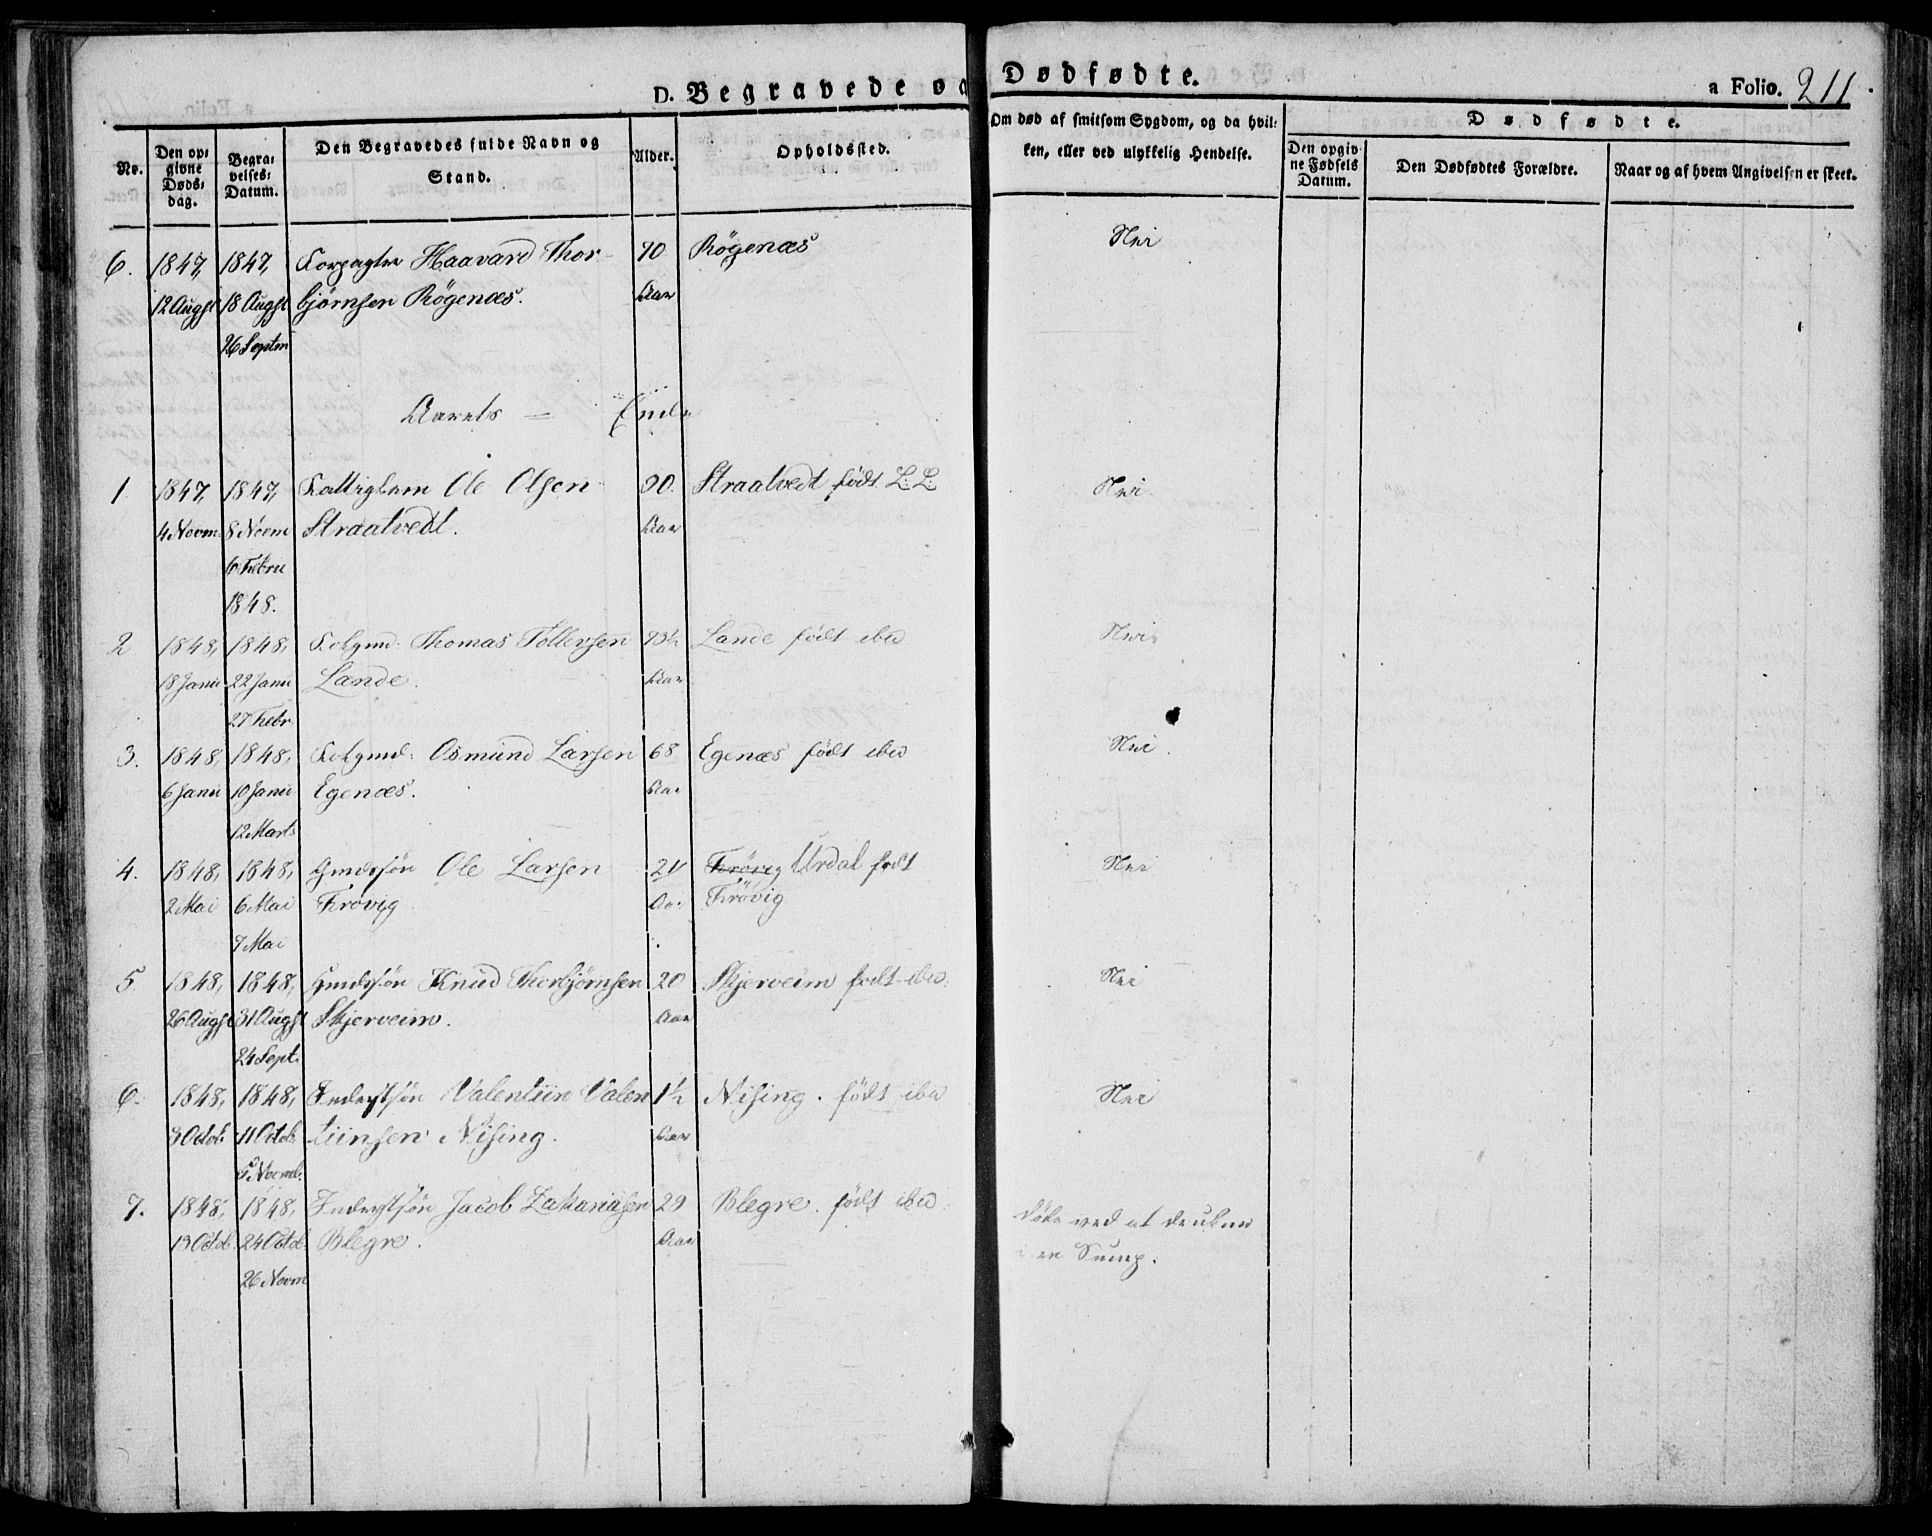 D. Begravede og Dødfødte. a Folio. 211
No. Den opgivne Dødsdag. Begravelses-Datum. Den Begravedes fulde Navn og Stand. Alder. Opholdssted. Om død af smitsom Sygdom, og da hvilken, eller ved ulykkelig Hendelse. Dødfødte. Den opgivne Fødsels Datum. Den Dødfødtes Forældre. Naar og af hvem Angivelsen er skeet.
6. 1847, 1847, Haavard Thor- 70 Røgenæs Nei
12 Augst 18 Augst bjørnsen Røgenæs. Aar
26 Septm
Aarets = Ende
1. 1847, 1847, Ole Olsen 90. Straatvedt født L: L: Nei
4 Novm 8 Novm Straatvedt. Aar
6 Febru
1848.
2 1848, 1848, Thomas Tollevsen 73½ Lande født ibd Nei
18 Janu 22 Janu Lande. Aar
27 Febr
3. 1848, 1848, Osmund Larsen 68 Egenæs født ibd Nei.
6 Janu 10 Janu Egenæs. Aar
12 Marts
4. 1848, 1848, Gmdssøn Ole Larsen 21 Frøvig Urdal født Nei
2 Mai 6 Mai Frøvig Aar Frøvig
7 Mai
5 1848, 1848, Gmdssøn Knud Thorbjørnsen 20 Skjerveim født ibd. Nei
26 Augst 31 Augst Skjerveim. Aar
24 Sept.
6. 1848, 1848, Inderstsøn Valentiin Valen 1½ Nising. født ibd Nei
3 Octob. 11 Octob. tiinsen Nising. Aar
5 Novmb.
7. 1848, 1848, Inderstsøn Jacob Zakariasen 29 Blegre. født ibd. døde ved at
19 Octob 24 Octob. Blegre. Aar i en Sump.
26 Novm